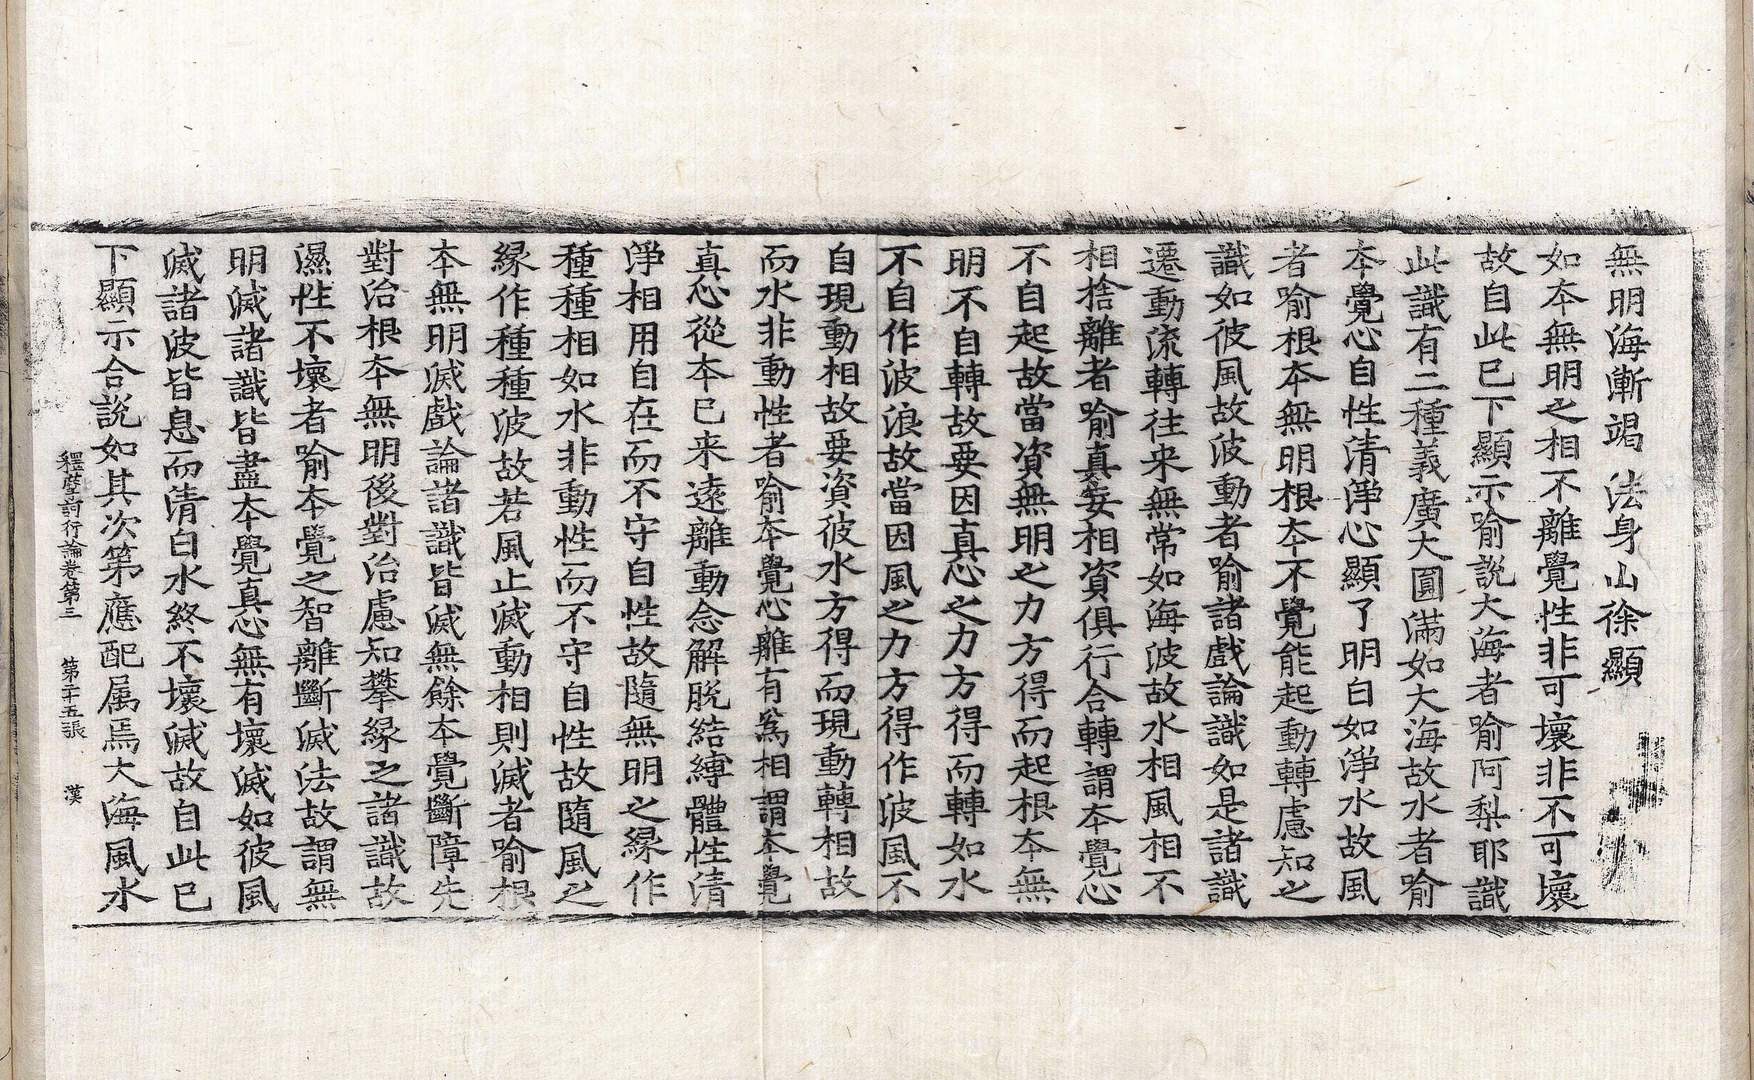 無明海漸竭　法身山徐顯
如本無明之相不離覺性非可壞非不可壞
故自此已下顯示喻說大海者喻阿梨耶識
此識有二種義廣大圓滿如大海故水者喻
本覺心自性清淨心顯了明白如淨水故風
者喻根本無明根本不覺能起動轉慮知之
識如彼風故波動者喻諸戲論識如是諸識
遷動流轉往来無常如海波故水相風相不
相捨離者喻真妄相資俱行合轉謂本覺心
不自起故當資無明之力方得而起根本無
明不自轉故要因真心之力方得而轉如水
不自作波浪故當因風之力方得作波風不
自現動相故要資彼水方得而現動轉相故
而水非動性者喻本覺心雖有為相謂本覺
真心從本已来遠離動念解脫結縛體性清
淨相用自在而不守自性故隨無明之緣作
種種相如水非動性而不守自性故隨風之
緣作種種波故若風止滅動相則滅者喻根
本無明滅戲論諸識皆滅無餘本覺斷障先
對治根本無明後對治慮知攀緣之諸識故
濕性不壞者喻本覺之智離斷滅法故謂無
明滅諸識皆盡本覺真心無有壞滅如彼風
滅諸波皆息而清白水終不壞滅故自此已
下顯示合說如其次第應配属焉大海風水
釋摩訶衍論卷第三　第二十五張　漢